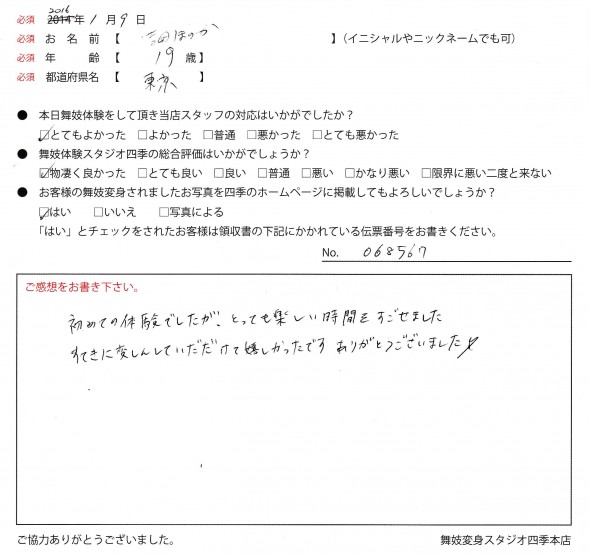 2016
必須 2014年 1 月 9 日
必須 お 名 前 【 ほのか 】(イニシャルやニックネームでも可)
必須 年 齢 【 19 歳】
必須 都道府県名 【 東京 】
● 本日舞妓体験をして頂き当店スタッフの対応はいかがでしたか？
☑とてもよかった □よかった □普通 □悪かった □とても悪かった
● 舞妓体験スタジオ四季の総合評価はいかがでしょうか？
☑物凄く良かった □とても良い □良い □普通 □悪い □かなり悪い □限界に悪い二度と来ない
● お客様の舞妓変身されましたお写真を四季のホームページに掲載してもよろしいでしょうか？
☑はい □いいえ □写真による
「はい」とチェックをされたお客様は領収書の下記にかかれている伝票番号をお書きください。
No. 068567
ご感想をお書き下さい。
初めての体験でしたが、とっても楽しい時間をすごせました
すてきに変しんしていただけて嬉しかったです ありがとうございました
ご協力ありがとうございました。
舞妓変身スタジオ四季本店